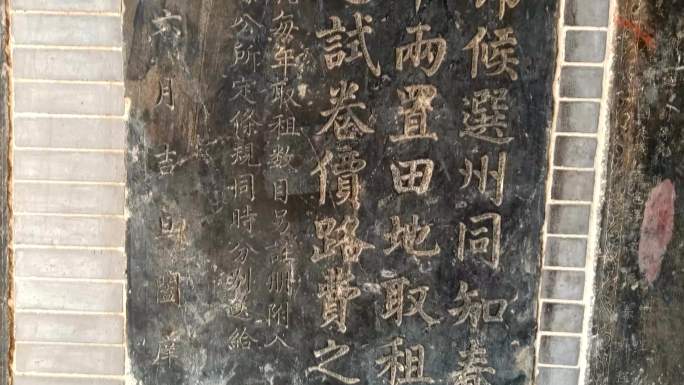 候選州同知春
兩置田地取租
試卷價路費之
每年取租数目另註册附入
公所定條規同時分別送給
六月吉旦庠